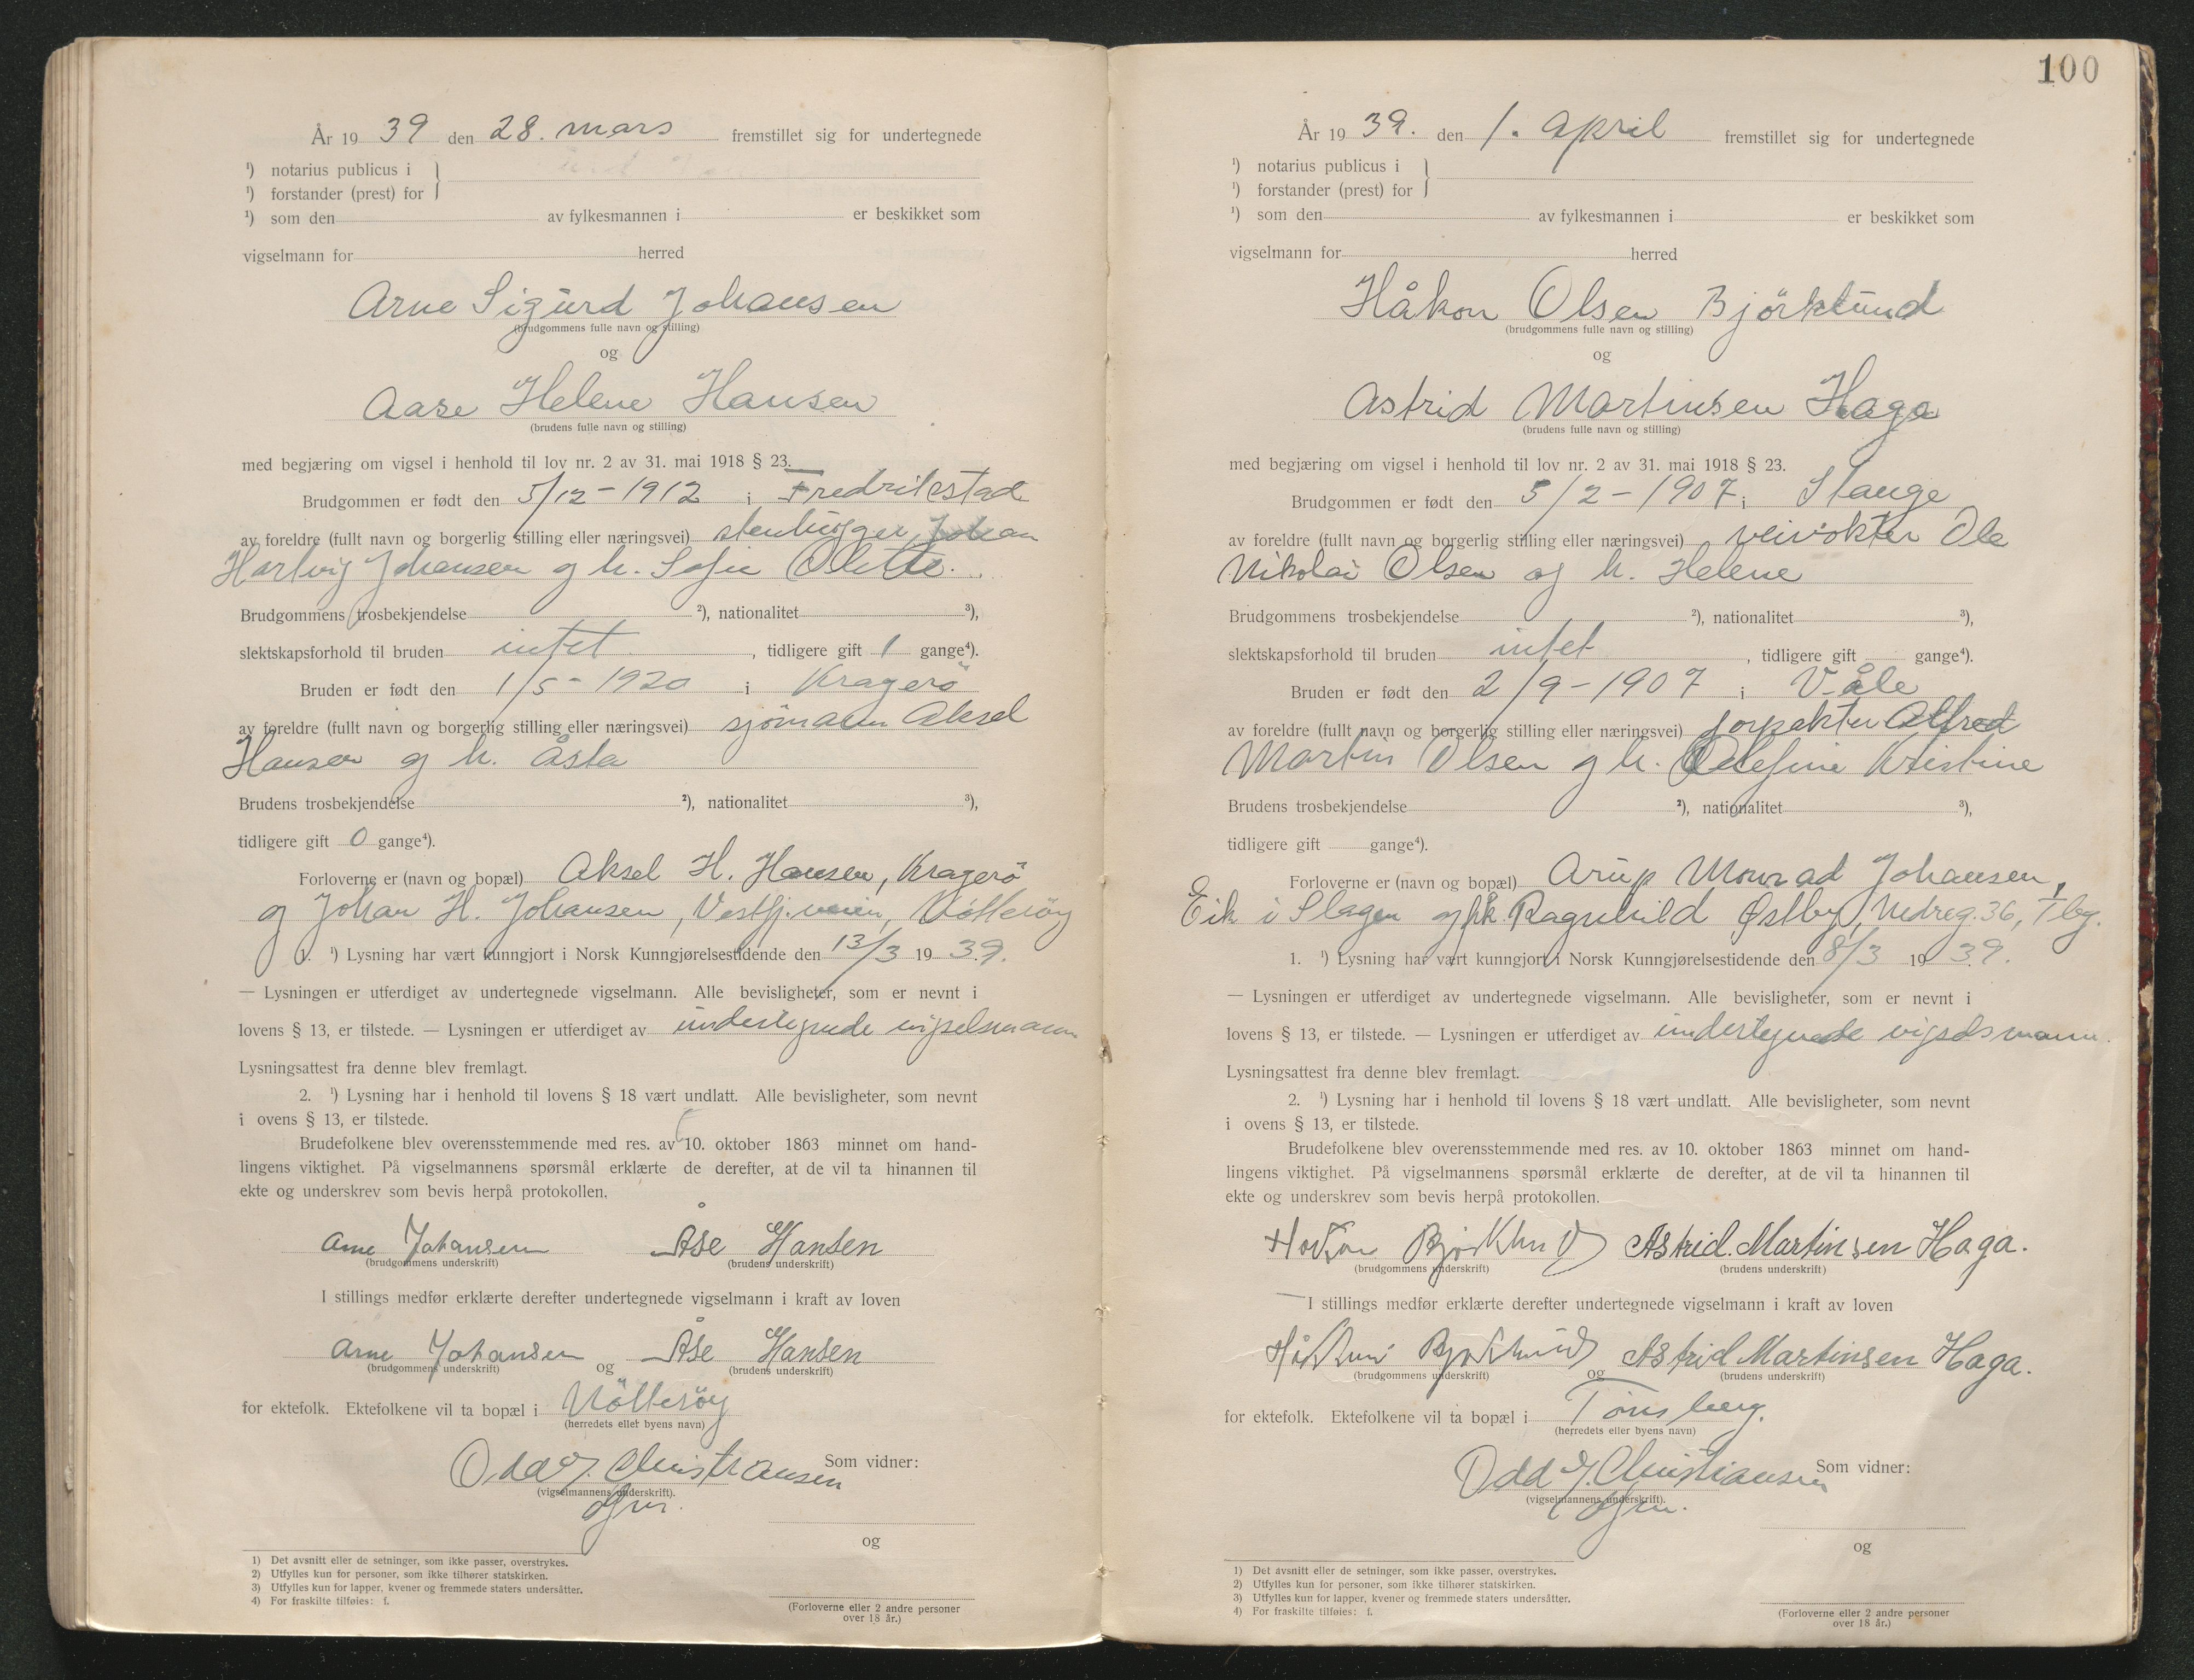 År 19 39 den 28. mars fremstillet sig for undertegnede
¹) notarius publicus i }
¹) forstander (prest) for
¹) som den av fylkesmannen i er beskikket som
vigselmann for herred
Arne Sigurd Johansen
(brudgommens fulle navn og stilling)
og
Aase Helene Hansen
(brudens fulle navn og stilling)
med begjæring om vigsel i henhold til lov nr. 2 av 31. mai 1918 § 23.
Brudgommen er født den 5/12-1912 i Fredrikstad
av foreldre (fullt navn og borgerlig stilling eller næringsvei) stenhugger Johan
Hartvig Johansen og h. Sofie Olette.
Brudgommens trosbekjendelse ²), nationalitet ³),
slektskapsforhold til bruden intet, tidligere gift 1 gange⁴).
Bruden er født den 1/5-1920 i Kragerö
av foreldre (fullt navn og borgerlig stilling eller næringsvei) sjömann Aksel
Hansen og h. Åsta
Brudens trosbekjendelse ²), nationalitet ³),
tidligere gift 0 gange⁴).
Forloverne er (navn og bopæl) Aksel H. Hansen, Kragerö
og Johan H. Johansen, Vestfj.veien, Nötteröy
1. ¹) Lysning har vært kunngjort i Norsk Kunngjørelsestidende den 13/3 19 39.
— Lysningen er utferdiget av undertegnede vigselmann. Alle bevisligheter, som er nevnt i
lovens § 13, er tilstede. — Lysningen er utferdiget av undertegnede vigselsmann
Lysningsattest fra denne blev fremlagt.
2. ¹) Lysning har i henhold til lovens § 18 vært undlatt. Alle bevisligheter, som nevnt
i ovens § 13, er tilstede.
Brudefolkene blev overensstemmende med res. av 10. oktober 1863 minnet om hand-
lingens viktighet. På vigselmannens spørsmål erklærte de derefter, at de vil ta hinannen til
ekte og underskrev som bevis herpå protokollen.
Arne Johansen Åse Hansen
(brudgommens underskrift) (brudens underskrift)
I stillings medfør erklærte derefter undertegnede vigselmann i kraft av loven
Arne Johansen og Åse Hansen
(brudgommens underskrift) (brudens underskrift)
for ektefolk. Ektefolkene vil ta bopæl i Nötteröy
(herredets eller byens navn)
Odd J. Christiansen Som vidner:
(vigselmannens underskrift).
og
1) Det avsnitt eller de setninger, som ikke passer, overstrykes.
2) Utfylles kun for personer, som ikke tilhører statskirken.
3) Utfylles kun for lapper, kvener og fremmede staters undersåtter.
4) For fraskilte tilføies: f.
(Forloverne eller 2 andre personer
over 18 år.)
100
År 19 39. den 1. april fremstillet sig for undertegnede
¹) notarius publicus i }
¹) forstander (prest) for
¹) som den av fylkesmannen i er beskikket som
vigselmann for herred
Håkon Olsen Björklund
(brudgommens fulle navn og stilling)
og
Astrid Martinsen Haga
(brudens fulle navn og stilling)
med begjæring om vigsel i henhold til lov nr. 2 av 31. mai 1918 § 23.
Brudgommen er født den 5/2-1907 i Stange
av foreldre (fullt navn og borgerlig stilling eller næringsvei) veivokter Ole
Nikolai Olsen og h. Helene
Brudgommens trosbekjendelse ²), nationalitet ³),
slektskapsforhold til bruden intet, tidligere gift gange⁴).
Bruden er født den 2/9-1907 i Våle
av foreldre (fullt navn og borgerlig stilling eller næringsvei) forpakter Alfred
Martin Olsen og h. Kristine
Brudens trosbekjendelse ²), nationalitet ³),
tidligere gift gange⁴).
Forloverne er (navn og bopæl) Arup Monrad Johansen,
Eik i Slagen og frk. Ragnhild Østby, Nedreg. 36, Tbg.
1. ¹) Lysning har vært kunngjort i Norsk Kunngjørelsestidende den 8/3 19 39.
— Lysningen er utferdiget av undertegnede vigselmann. Alle bevisligheter, som er nevnt i
lovens § 13, er tilstede. — Lysningen er utferdiget av undertegnede vigselsmann.
Lysningsattest fra denne blev fremlagt.
2. ¹) Lysning har i henhold til lovens § 18 vært undlatt. Alle bevisligheter, som nevnt
i ovens § 13, er tilstede.
Brudefolkene blev overensstemmende med res. av 10. oktober 1863 minnet om hand-
lingens viktighet. På vigselmannens spørsmål erklærte de derefter, at de vil ta hinannen til
ekte og underskrev som bevis herpå protokollen.
Håkon Bjørklund Astrid. Martinsen Haga.
(brudgommens underskrift) (brudens underskrift)
I stillings medfør erklærte derefter undertegnede vigselmann i kraft av loven
Håkon Bjørklund og Astrid Martinsen Haga.
(brudgommens underskrift) (brudens underskrift)
for ektefolk. Ektefolkene vil ta bopæl i Tönsberg.
(herredets eller byens navn)
Odd J. Christiansen Som vidner:
(vigselmannens underskrift).
og
1) Det avsnitt eller de setninger, som ikke passer, overstrykes.
2) Utfylles kun for personer, som ikke tilhører statskirken.
3) Utfylles kun for lapper, kvener og fremmede staters undersåtter.
4) For fraskilte tilføies: f.
(Forloverne eller 2 andre personer
over 18 år.)